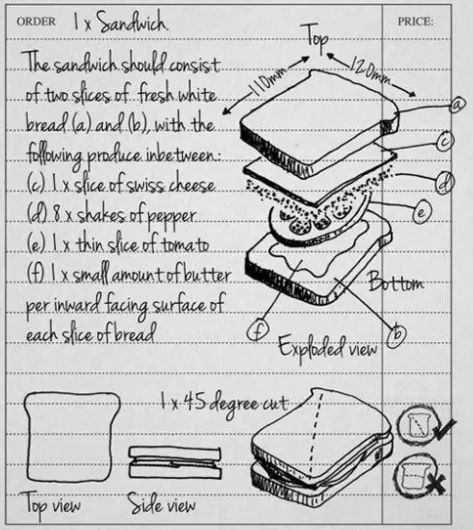 ORDER 1 x Sandwich. PRICE:
The sandwich should consist
of two slices of fresh white
bread (a) and (b), with the
following produce inbetween:
(c) 1 x slice of swiss cheese
(d) 8 x shakes of pepper
(e) 1 x thin slice of tomato
(f) 1 x small amount of butter
per inward facing surface of
each slice of bread
Top
110mm
120mm
a
c
d
e
Bottom
f
b
Exploded view
1 x 45 degree cut
Top view
Side view